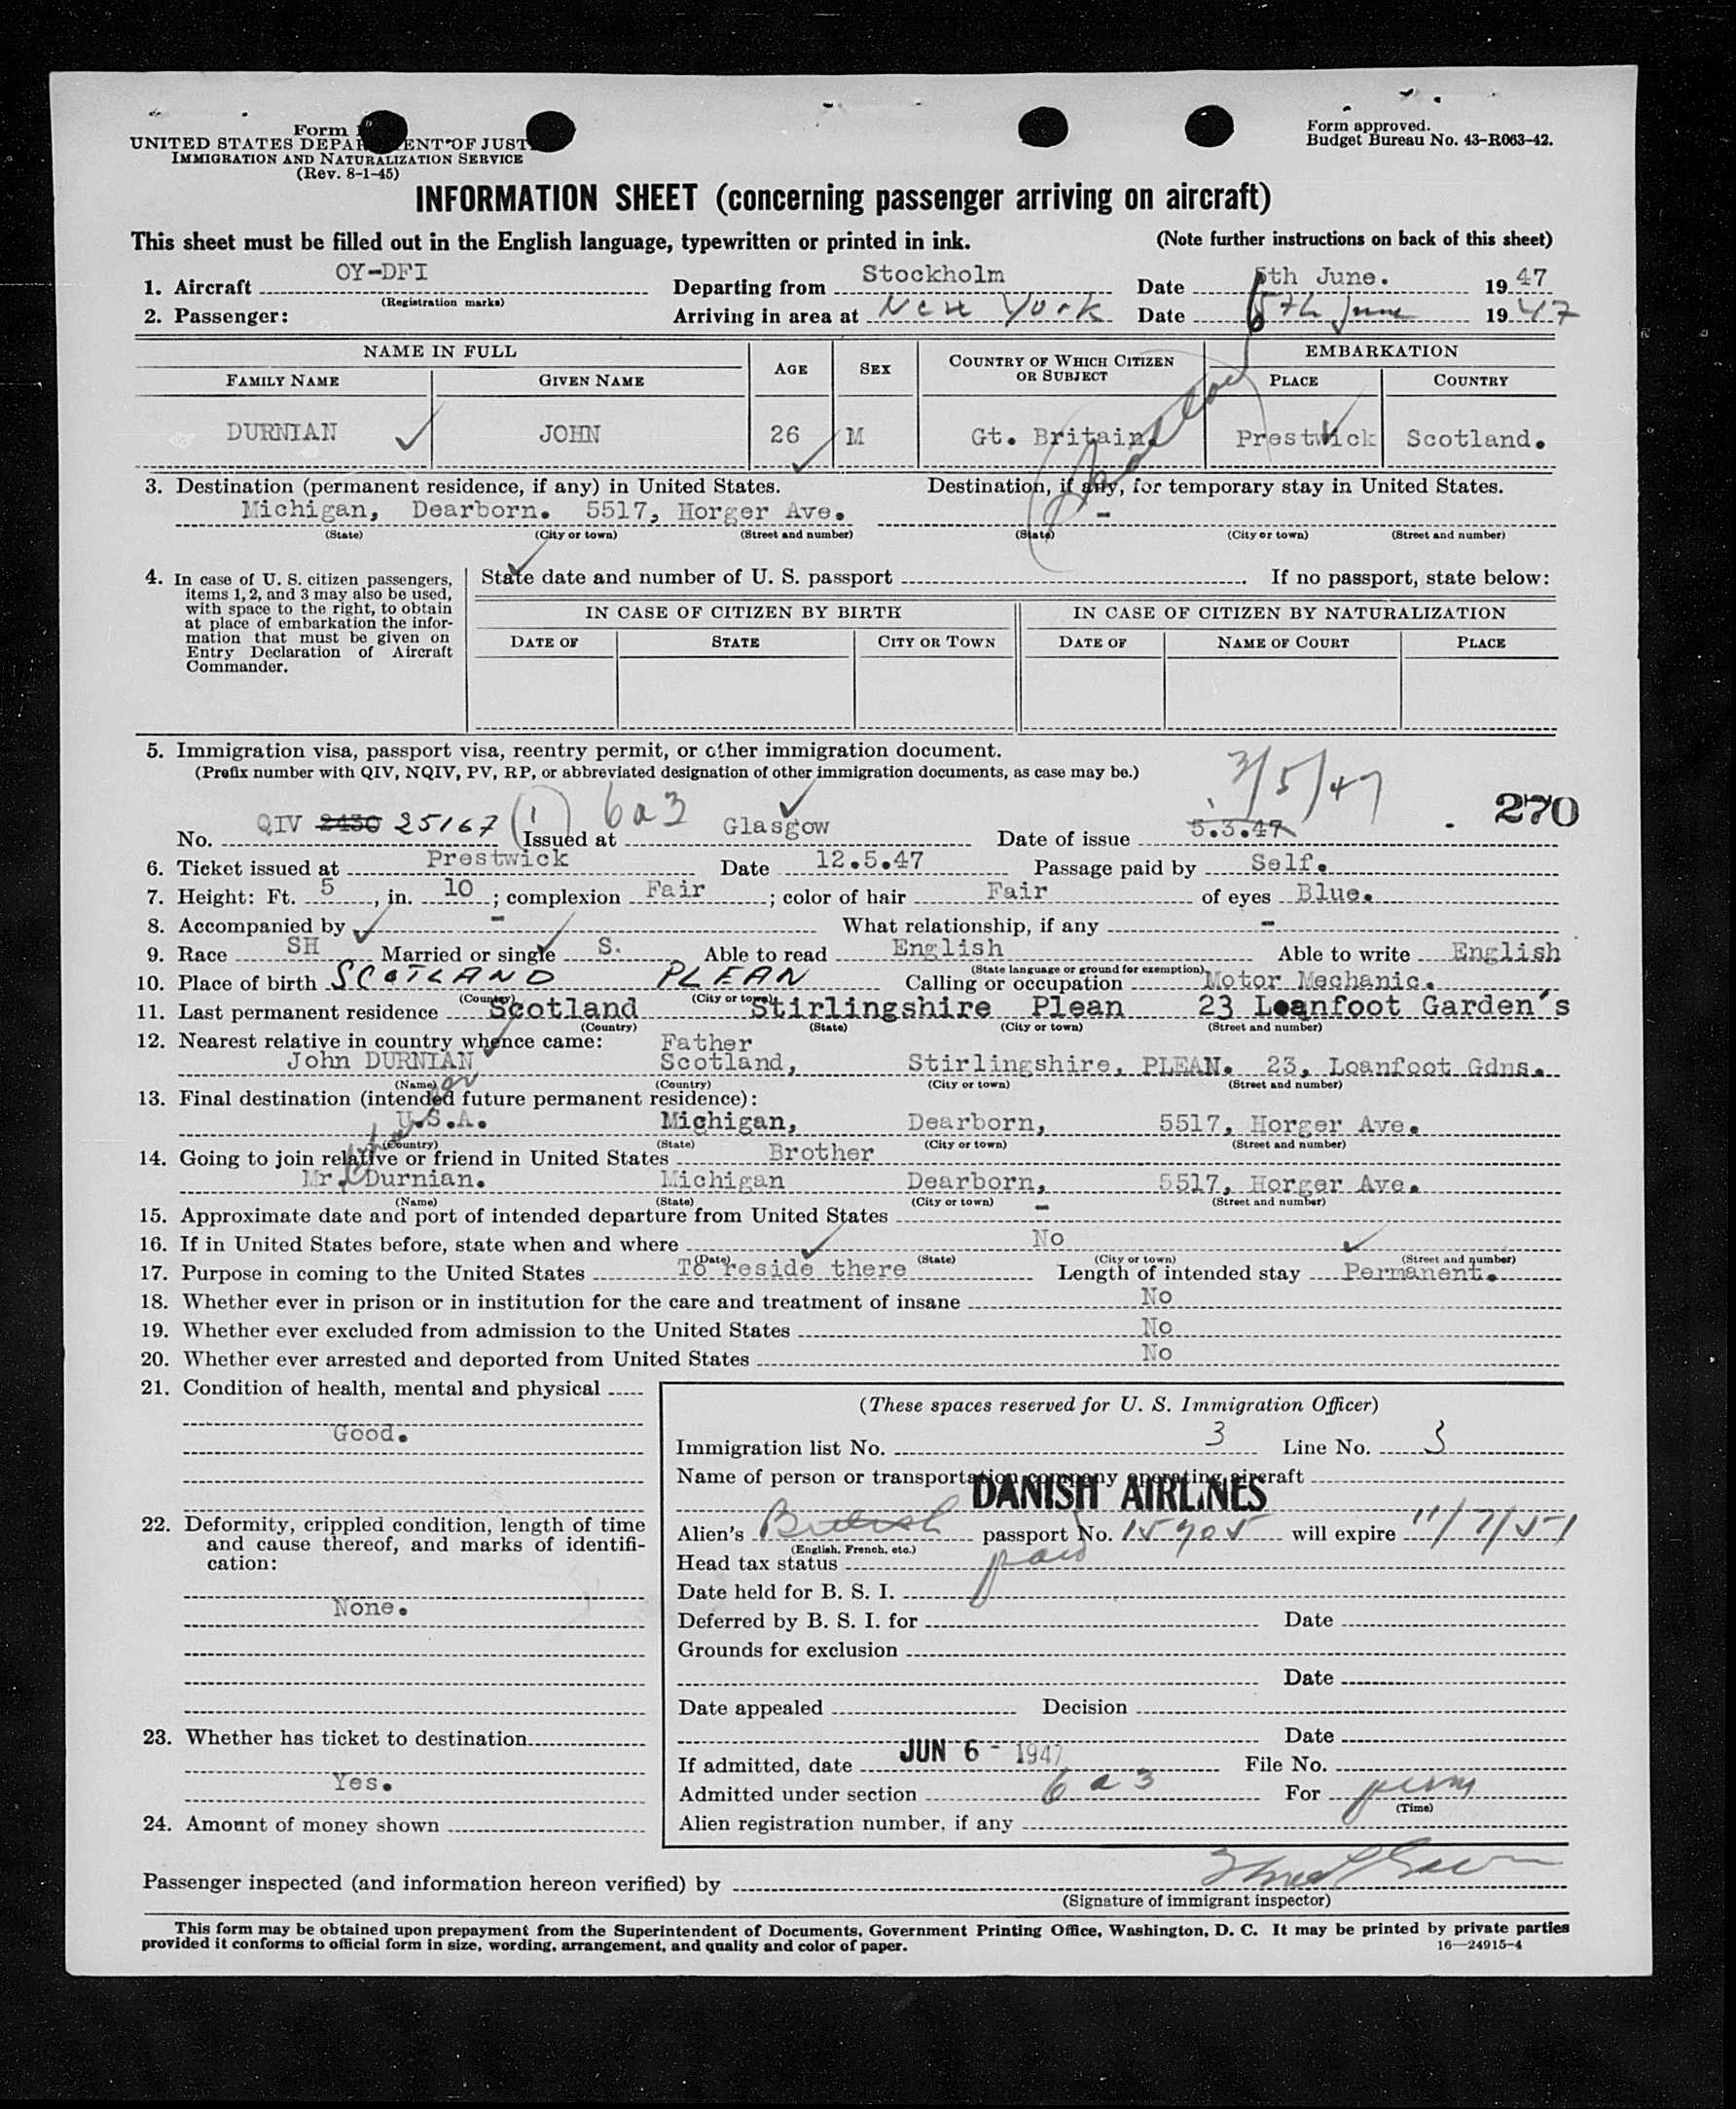 Form
UNITED STATES DEPA ENT OF JUST
IMMIGRATION AND NATURALIZATION SERVICE
(Rev. 8-1-45)
Form approved.
Budget Bureau No. 43-R063-42.
INFORMATION SHEET (concerning passenger arriving on aircraft)
This sheet must be filled out in the English language, typewritten or printed in ink. (Note further instructions on back of this sheet)
1. Aircraft OY-DFI Departing from Stockholm Date 5th June. 19 47
(Registration marks)
2. Passenger: Arriving in area at New York Date 6th June 19 47
NAME IN FULL AGE SEX COUNTRY OF WHICH CITIZEN OR SUBJECT EMBARKATION
FAMILY NAME GIVEN NAME PLACE COUNTRY
DURNIAN JOHN 26 M Gt. Britain. Prestwick Scotland.
3. Destination (permanent residence, if any) in United States. Destination, if any, for temporary stay in United States.
Michigan, Dearborn. 5517, Horger Ave. -
(State) (City or town) (Street and number) (State) (City or town) (Street and number)
4. In case of U. S. citizen passengers, items 1, 2, and 3 may also be used, with space to the right, to obtain at place of embarkation the information that must be given on Entry Declaration of Aircraft Commander.
State date and number of U. S. passport . If no passport, state below:
IN CASE OF CITIZEN BY BIRTH IN CASE OF CITIZEN BY NATURALIZATION
DATE OF STATE CITY OR TOWN DATE OF NAME OF COURT PLACE
5. Immigration visa, passport visa, reentry permit, or other immigration document.
(Prefix number with QIV, NQIV, PV, RP, or abbreviated designation of other immigration documents, as case may be.)
3/5/47
270
No. QIV 2430 25167 (1) 6a3 Issued at Glasgow Date of issue 5.3.47
6. Ticket issued at Prestwick Date 12.5.47 Passage paid by Self.
7. Height: Ft. 5, in. 10; complexion Fair; color of hair Fair of eyes Blue.
8. Accompanied by - What relationship, if any -
9. Race SH Married or single S. Able to read English Able to write English
(State language or ground for exemption)
10. Place of birth SCOTLAND PLEAN Calling or occupation Motor Mechanic.
(Country) (City or town)
11. Last permanent residence Scotland Stirlingshire Plean 23 Loanfoot Garden's
(Country) (State) (City or town) (Street and number)
12. Nearest relative in country whence came: Father
John DURNIAN Scotland, Stirlingshire, PLEAN. 23, Loanfoot Gdns.
(Name) (Country) (City or town) (Street and number)
13. Final destination (intended future permanent residence):
U.S.A. Michigan, Dearborn, 5517, Horger Ave.
(Country) (State) (City or town) (Street and number)
14. Going to join relative or friend in United States Brother
Mr. Durnian. Michigan Dearborn, 5517, Horger Ave.
(Name) (State) (City or town) (Street and number)
15. Approximate date and port of intended departure from United States -
16. If in United States before, state when and where No
(Date) (State) (City or town) (Street and number)
17. Purpose in coming to the United States To reside there Length of intended stay Permanent.
18. Whether ever in prison or in institution for the care and treatment of insane No
19. Whether ever excluded from admission to the United States No
20. Whether ever arrested and deported from United States No
21. Condition of health, mental and physical
Good.
22. Deformity, crippled condition, length of time and cause thereof, and marks of identification:
None.
23. Whether has ticket to destination
Yes.
24. Amount of money shown
(These spaces reserved for U. S. Immigration Officer)
Immigration list No. 3 Line No. 3
Name of person or transportation company operating aircraft
DANISH AIRLINES
Alien's British passport No. 15905 will expire 11/7/51
(English, French, etc.)
Head tax status paid
Date held for B. S. I.
Deferred by B. S. I. for Date
Grounds for exclusion
Date
Date appealed Decision
Date
If admitted, date JUN 6 - 1947 File No.
Admitted under section 6a3 For perm
(Time)
Alien registration number, if any
Passenger inspected (and information hereon verified) by
(Signature of immigrant inspector)
This form may be obtained upon prepayment from the Superintendent of Documents, Government Printing Office, Washington, D. C. It may be printed by private parties
provided it conforms to official form in size, wording, arrangement, and quality and color of paper. 16—24915-4